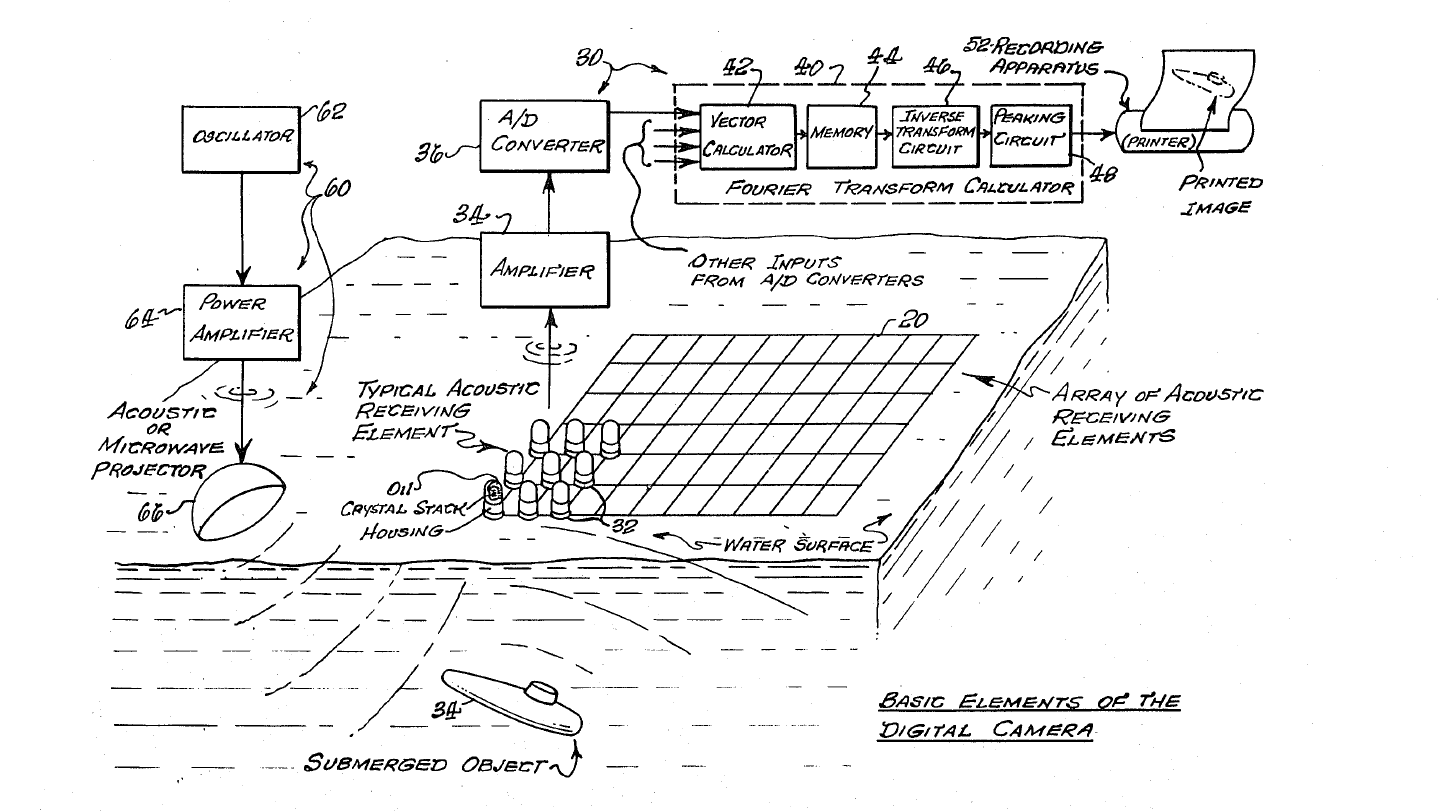 52-RECORDING
APPARATUS
30
42
40
44
46
62
OSCILLATOR
A/D
CONVERTER
36
VECTOR
CALCULATOR
MEMORY
INVERSE
TRANSFORM
CIRCUIT
PEAKING
CIRCUIT
(PRINTER)
48
FOURIER TRANSFORM CALCULATOR
PRINTED
IMAGE
60
34
AMPLIFIER
OTHER INPUTS
FROM A/D CONVERTERS
64
POWER
AMPLIFIER
20
TYPICAL ACOUSTIC
RECEIVING
ELEMENT
ARRAY OF ACOUSTIC
RECEIVING
ELEMENTS
ACOUSTIC
OR
MICROWAVE
PROJECTOR
66
OIL
CRYSTAL STACK
HOUSING
32
WATER SURFACE
34
SUBMERGED OBJECT
BASIC ELEMENTS OF THE
DIGITAL CAMERA